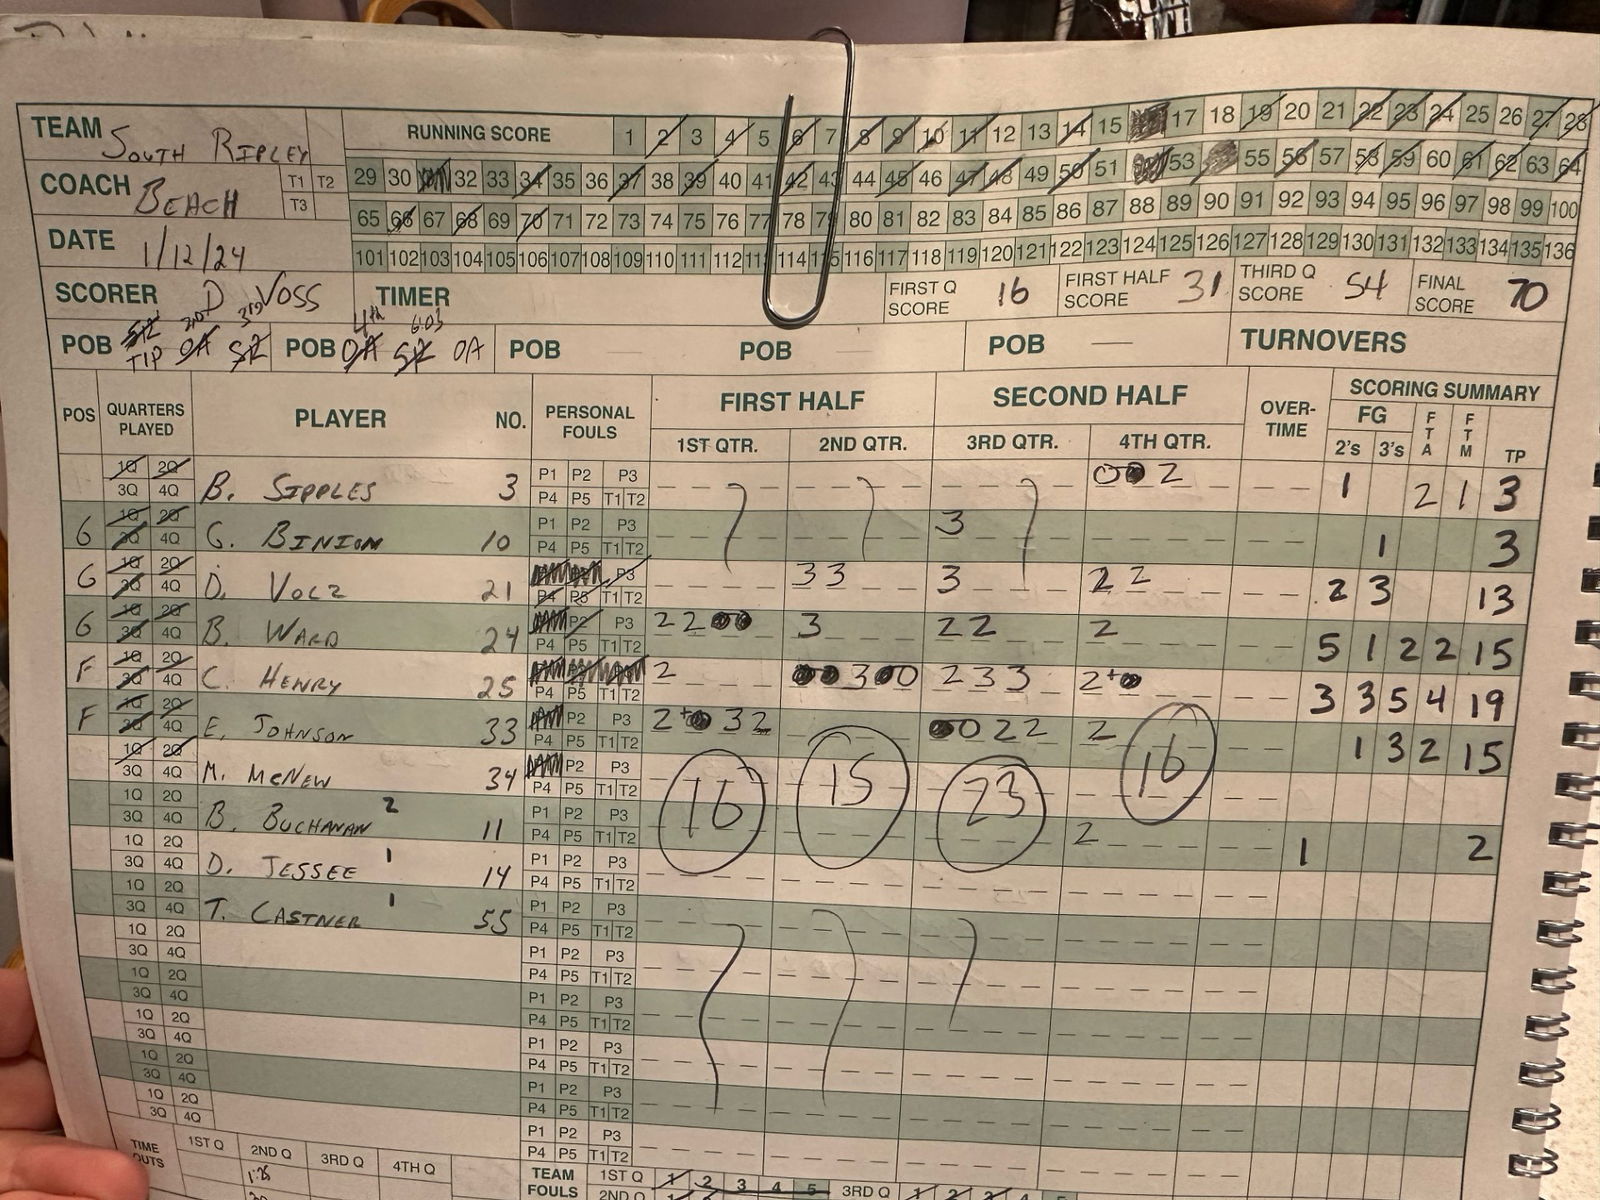 TEAM South Ripley
RUNNING SCORE 1 2 3 4 5 6 7 8 9 10 11 12 13 14 15 17 18 19 20 21 22 23 24 25 26 27 28
COACH Beach T1 T2 T3
29 30 32 33 34 35 36 37 38 39 40 41 42 43 44 45 46 47 48 49 50 51 53 55 56 57 58 59 60 61 62 63 64
65 66 67 68 69 70 71 72 73 74 75 76 77 78 79 80 81 82 83 84 85 86 87 88 89 90 91 92 93 94 95 96 97 98 99 100
DATE 1/12/24
101 102 103 104 105 106 107 108 109 110 111 112 114 115 116 117 118 119 120 121 122 123 124 125 126 127 128 129 130 131 132 133 134 135 136
SCORER D VOSS TIMER FIRST Q SCORE 16 FIRST HALF SCORE 31 THIRD Q SCORE 54 FINAL SCORE 70
2nd 3rd 4th 6:03
POB SR TIP OA SR POB OA SR OA POB — POB — POB — TURNOVERS
POS QUARTERS PLAYED PLAYER NO. PERSONAL FOULS FIRST HALF SECOND HALF OVER-TIME SCORING SUMMARY
1ST QTR. 2ND QTR. 3RD QTR. 4TH QTR. FG 2's 3's FTA FTM TP
1Q 2Q 3Q 4Q B. SIPPLES 3 P1 P2 P3 P4 P5 T1 T2 0 2 1 2 1 3
G 1Q 2Q 3Q 4Q C. BINION 10 P1 P2 P3 P4 P5 T1 T2 3 1 3
G 1Q 2Q 3Q 4Q D. VOLZ 21 P3 P4 P5 T1 T2 3 3 3 2 2 2 3 13
G 1Q 2Q 3Q 4Q B. WARD 24 P2 P3 P4 P5 T1 T2 2 2 0 0 3 2 2 2 5 1 2 2 15
F 1Q 2Q 3Q 4Q C. HENRY 25 P4 P5 T1 T2 2 0 0 3 0 0 2 3 3 2+0 3 3 5 4 19
F 1Q 2Q 3Q 4Q E. JOHNSON 33 P2 P3 P4 P5 T1 T2 2+0 3 2 0 0 2 2 2 1 3 2 15
1Q 2Q 3Q 4Q M. McNEW 34 P2 P3 P4 P5 T1 T2 16 15 23 16
1Q 2Q 3Q 4Q B. BUCHANAN 2 11 P1 P2 P3 P4 P5 T1 T2 2 1 2
1Q 2Q 3Q 4Q D. JESSEE 1 14 P1 P2 P3 P4 P5 T1 T2
1Q 2Q 3Q 4Q T. CASTNER 1 55 P1 P2 P3 P4 P5 T1 T2
1Q 2Q 3Q 4Q P1 P2 P3 P4 P5 T1 T2
1Q 2Q 3Q 4Q P1 P2 P3 P4 P5 T1 T2
1Q 2Q 3Q 4Q P1 P2 P3 P4 P5 T1 T2
1Q 2Q 3Q 4Q P1 P2 P3 P4 P5 T1 T2
1Q 2Q 3Q 4Q P1 P2 P3 P4 P5 T1 T2
TIME OUTS 1ST Q 2ND Q 3RD Q 4TH Q
1:26
TEAM FOULS 1ST Q 1 2 3 4 5 3RD Q 1 2 3 4 5
2ND Q